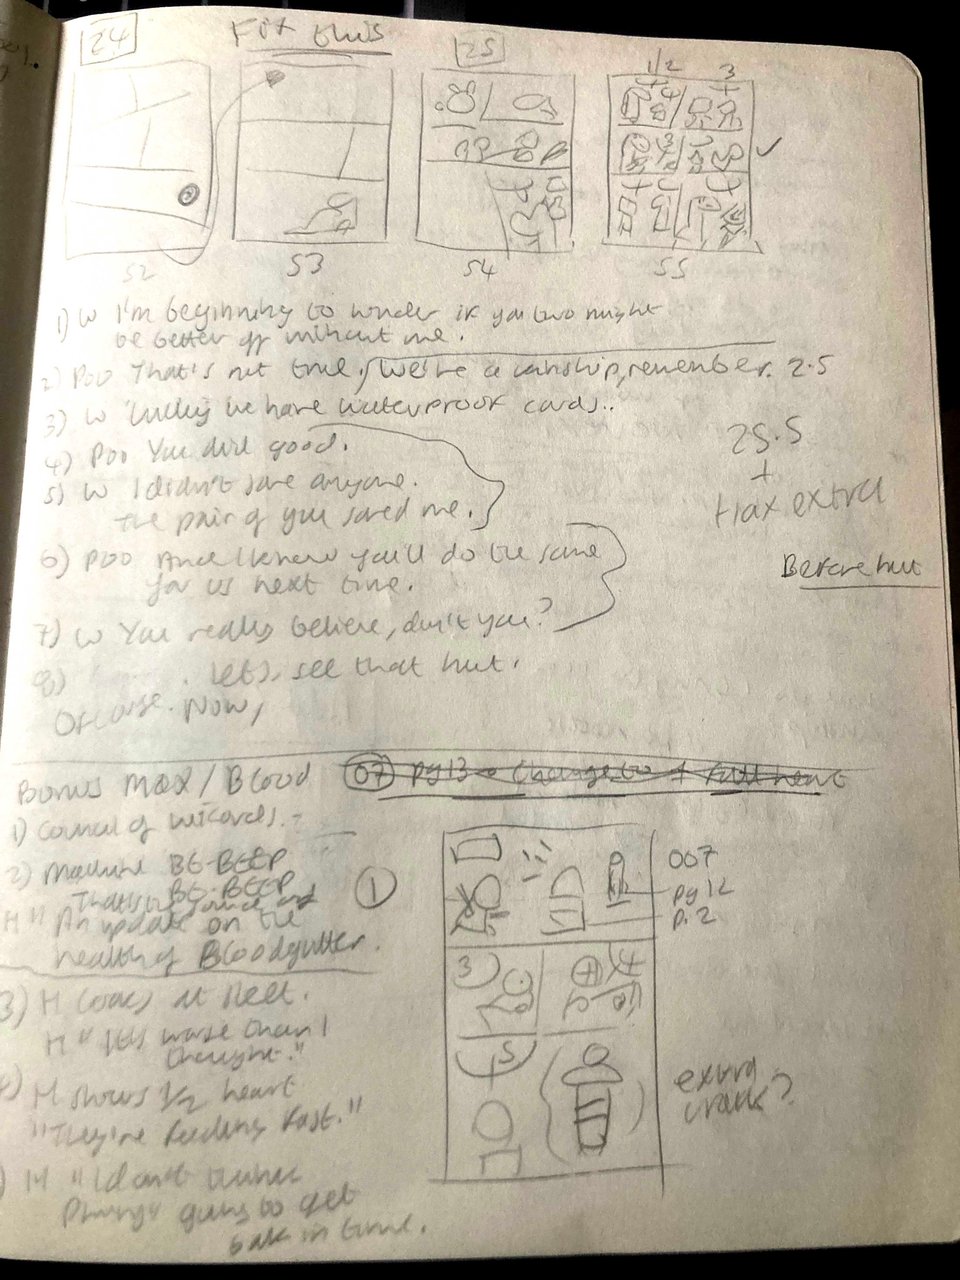 24
Fit this
25
1/2 3
4
52
53
54
55
1) W I'm beginning to wonder if you two might
be better off without me.
2) Poo That's not true, we're a 
remember. 2.5
3) W Lucky we have waterproof cards..
4) Poo You did good.
5) W I didn't save anyone.
The pair of you saved me.
25.5
+
extra
6) Poo And I know you'll do the same
for us next time.
Before hut
7) W You really believe, don't you?
8) Let's see that hut.
Of course. Now,
Bonus Max/Blood
07 pg 13 Change to full heart
1) Council of wizards.
2) Machine BE-BEEP
BE-BEEP
M " An update on the
health of Bloodgutter.
1
007
pg 12
p. 2
3)
5
3) M looks at sheet.
M "It's worse than I
thought."
4) M shows 1/2 heart
"They're feeding fast."
extra
crack?
M "I don't think
going to get
back in time.